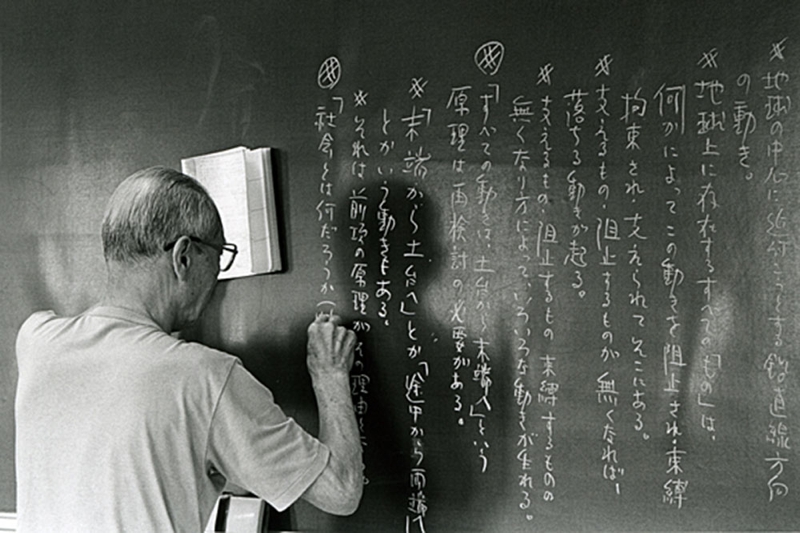 ※地球の中心に近付こうとする鉛直線方向
の動き。
※地球上に存在するすべての「もの」は、
何かによってこの動きを阻止され・束縛
拘束され・支えられてそこにある。
※支えるもの・阻止するものが無くなれば、
落ちる動きが起る。
※支えるもの、阻止するもの、束縛するものの
無くなり方によって、いろいろな動きが生れる。
※「すべての動きは、土台から末端へ」という
原理は再検討の必要がある。
※「末端から土台へ」とか「途中から両端へ」
とかいう動きもある。
※それは前項の原理がその理由
※「社会とは何だろうか